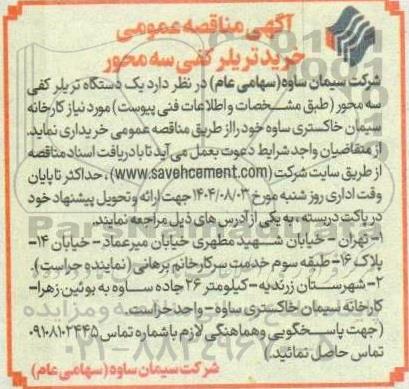 آگهی مناقصه عمومی
خرید تریلر کفی سه محور
شرکت سیمان ساوه (سهامی عام) در نظر دارد یک دستگاه تریلر کفی
سه محور (طبق مشخصات و اطلاعات فنی پیوست) مورد نیاز کارخانه
سیمان خاکستری ساوه خود را از طریق مناقصه عمومی خریداری نماید.
از متقاضیان واجد شرایط دعوت بعمل می آید تا با دریافت اسناد مناقصه
از طریق سایت شرکت (www.savehcement.com)، حداکثر تا پایان
وقت اداری روز شنبه مورخ ۱۴۰۴/۰۸/۰۳ جهت ارائه و تحویل پیشنهاد خود
در پاکت دربسته، به یکی از آدرس های ذیل مراجعه نمایند.
۱- تهران - خیابان شهید مطهری خیابان میرعماد - خیابان ۱۴-
پلاک ۱۶- طبقه سوم خدمت سرکار خانم برهانی (نماینده حراست).
۲- شهرستان زرندیه - کیلومتر ۲۶ جاده ساوه به بوئین زهرا-
کارخانه سیمان خاکستری ساوه - واحد حراست.
(جهت پاسخگویی و هماهنگی لازم با شماره تماس ۰۹۱۰۸۱۰۲۴۴۵
تماس حاصل نمائید.)
شرکت سیمان ساوه (سهامی عام)